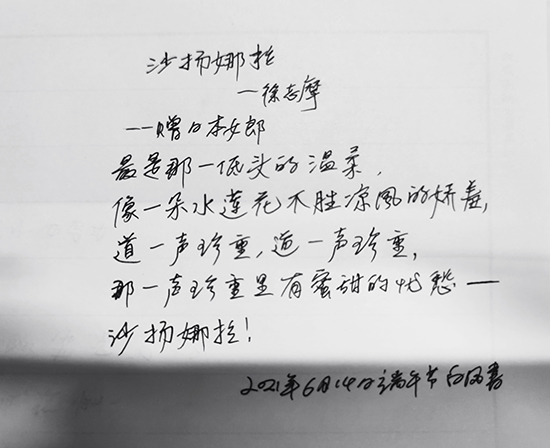 沙扬娜拉
—徐志摩
——赠日本女郎
最是那一低头的温柔，
像一朵水莲花不胜凉风的娇羞，
道一声珍重，道一声珍重，
那一声珍重里有蜜甜的忧愁——
沙扬娜拉！
2021年6月14日端午节